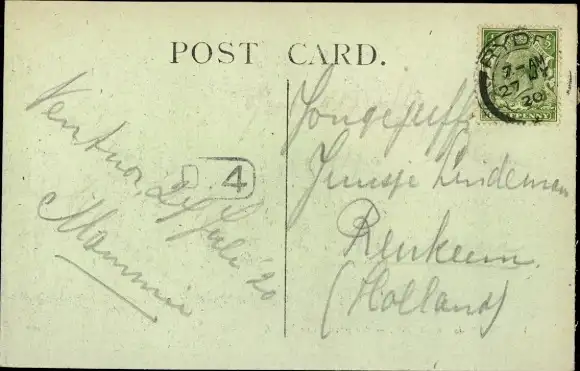 POST CARD.
RYDE
7-AM
27 JY
20
HALFPENNY
4
Ventnor, 24 Juli '20
Mammie
Jongejuffr
Juusje Lindeman
Renkum
(Holland)